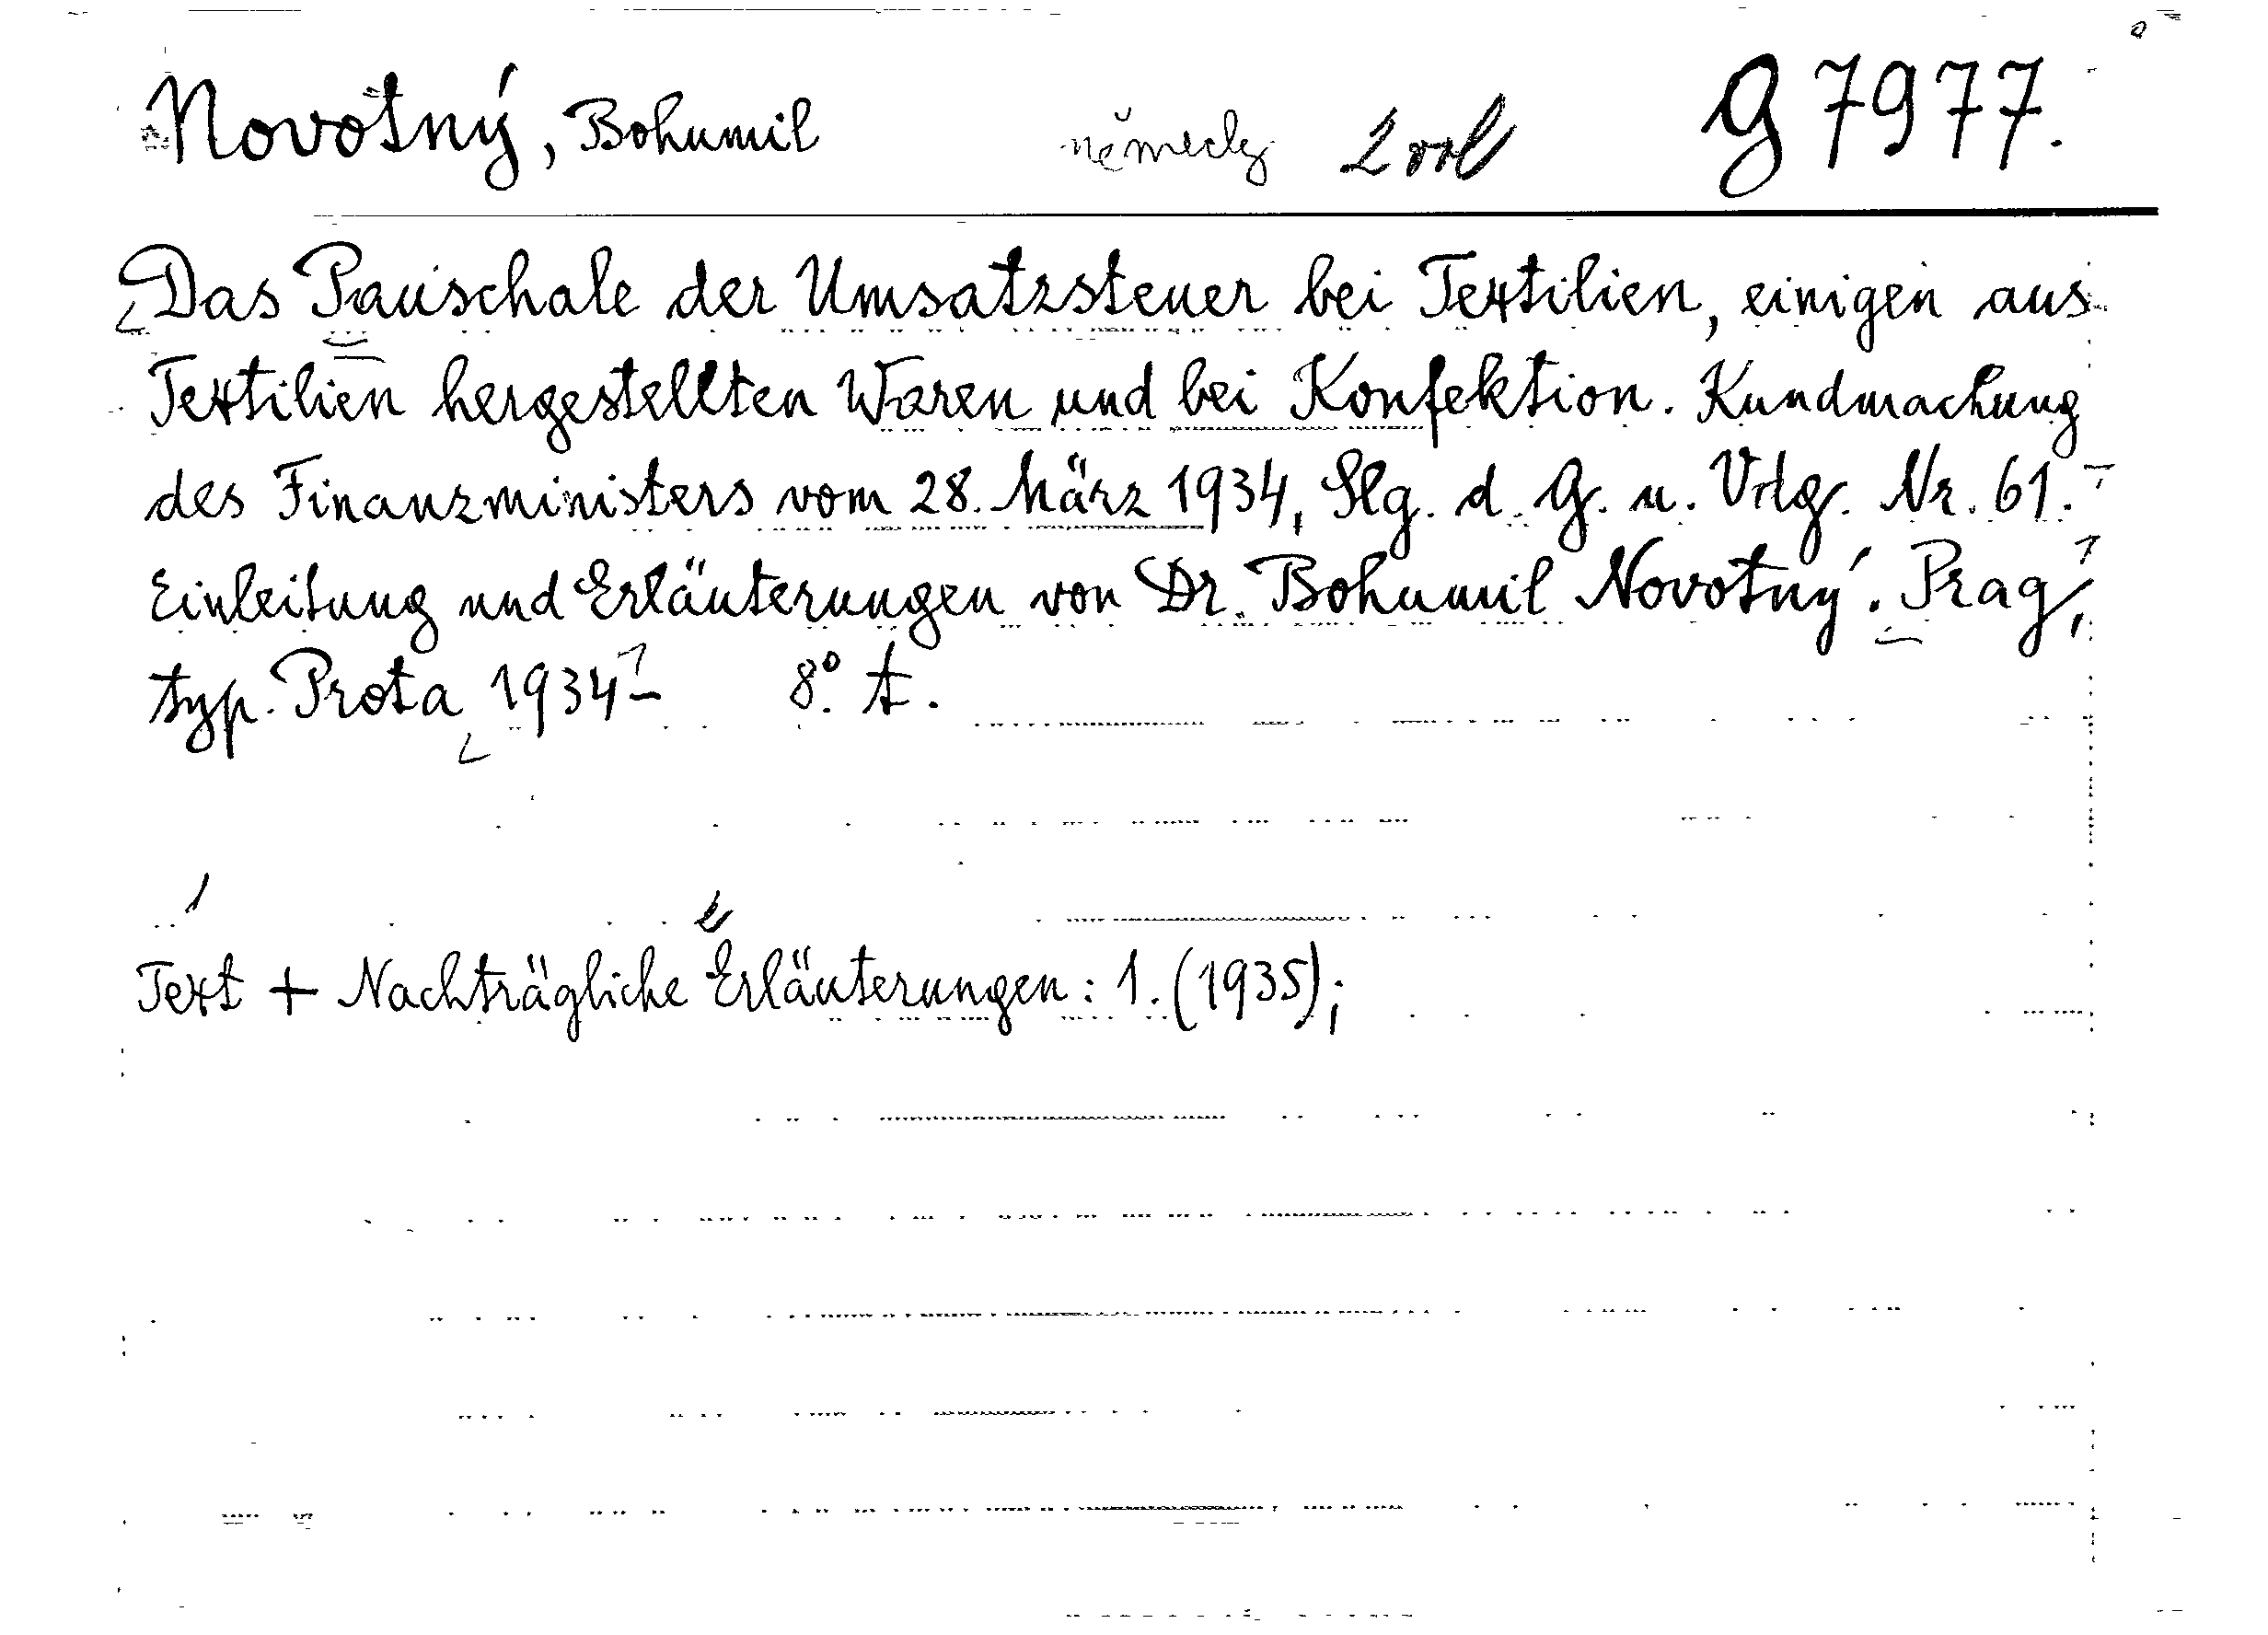 Novotný, Bohumil německy 2 vol G 7977.
Das Pauschale der Umsatzsteuer bei Textilien, einigen aus
Textilien hergestellten Waren und bei Konfektion. Kundmachung
des Finanzministers vom 28. März 1934, Slg. d. G. u. Vdg. Nr. 61.
Einleitung und Erläuterungen von Dr. Bohumil Novotný. Prag,
typ. Prota 1934– 8°. t.
Text + Nachträgliche Erläuterungen: 1. (1935);